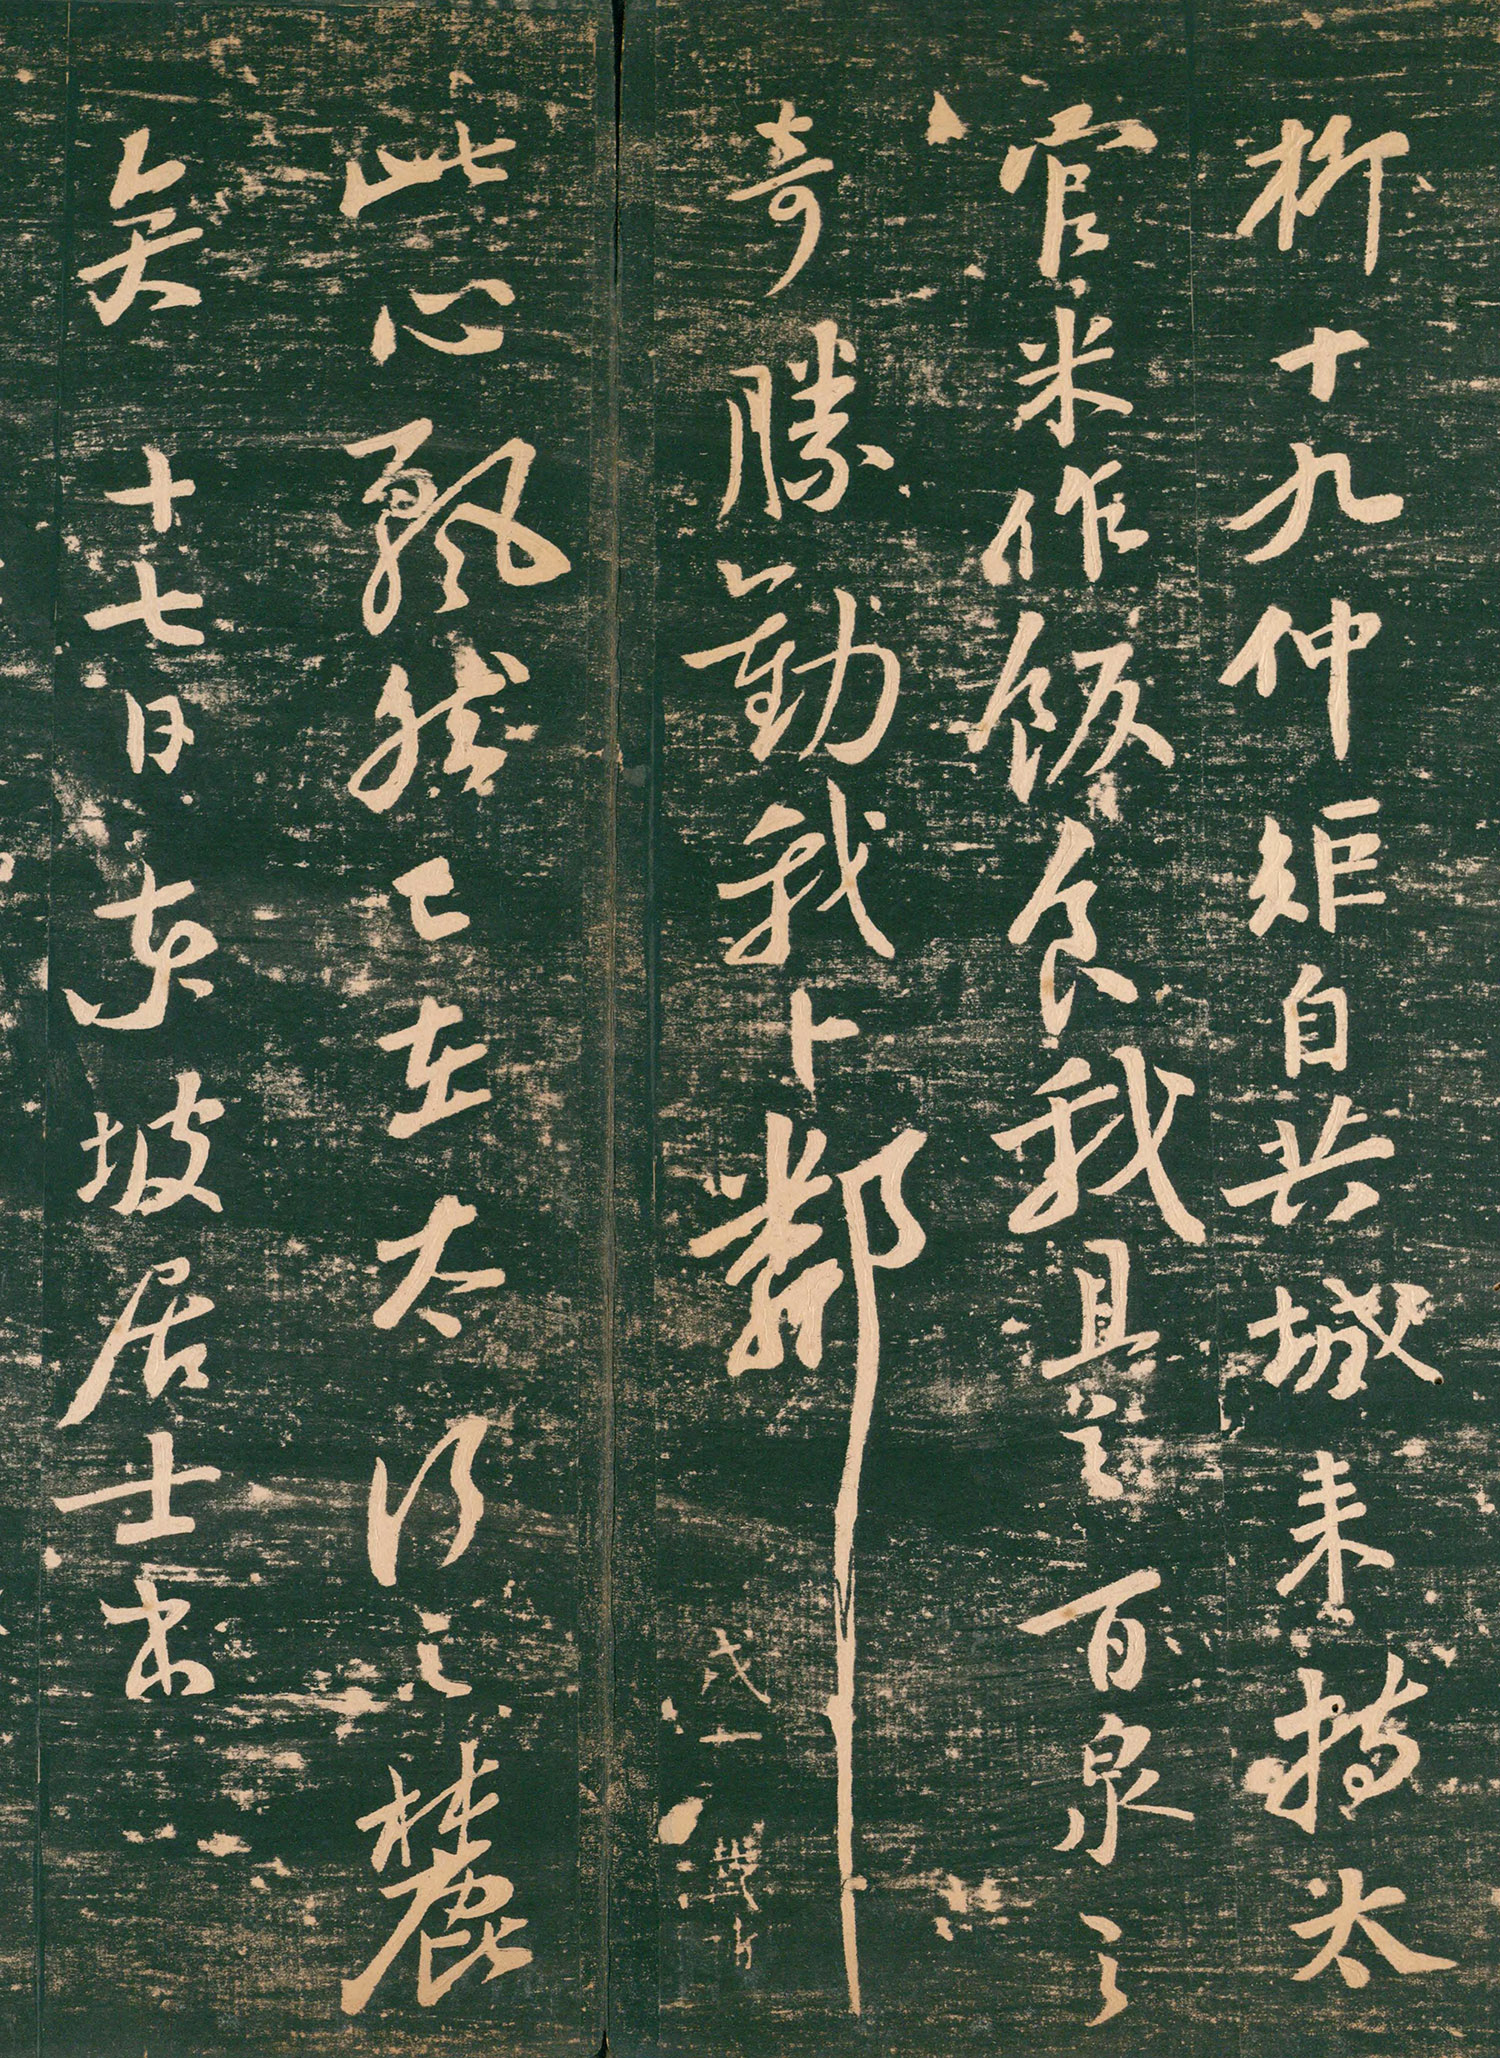 柳十九仲矩自共城来持太
官米作飯食我且言百泉之
奇勝勸我卜鄰
此心飄然已在太行之麓
矣 十七日東坡居士書